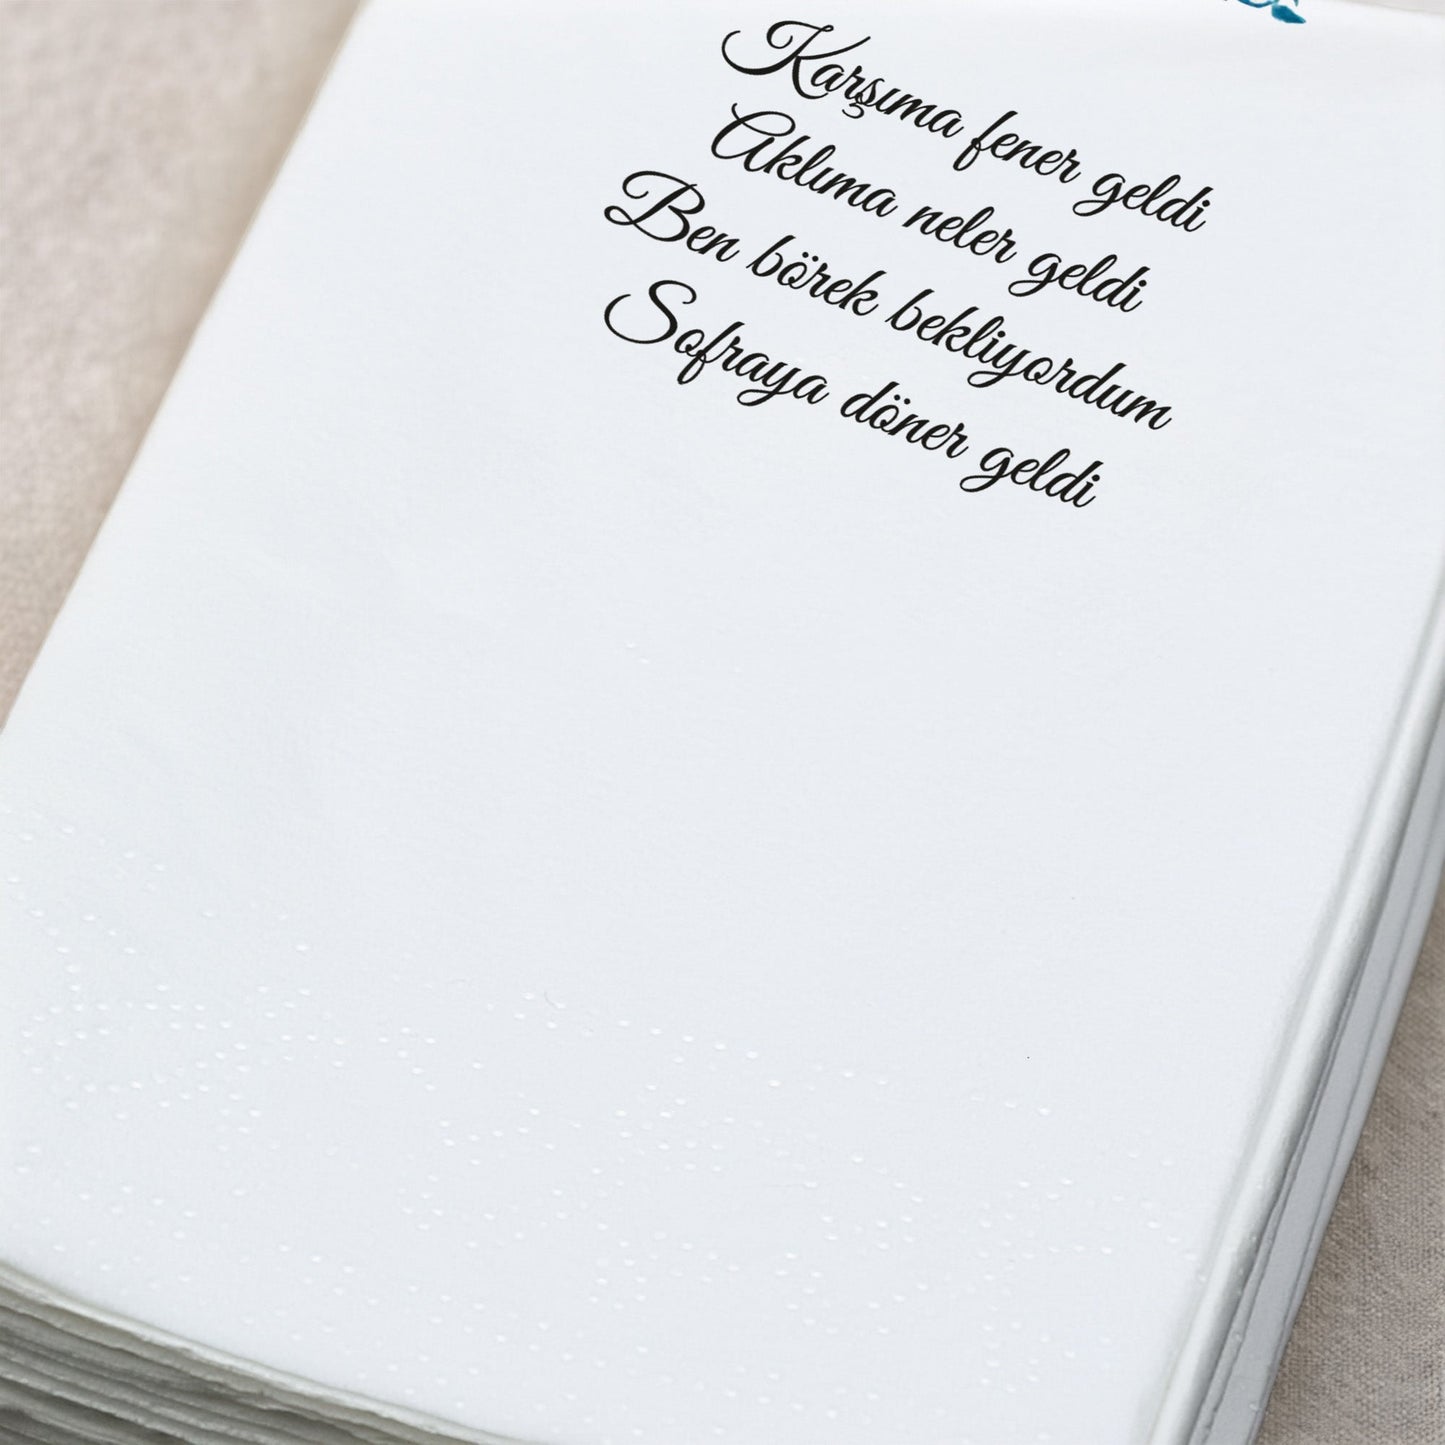 Karşıma fener geldi
Aklıma neler geldi
Ben börek bekliyordum
Sofraya döner geldi